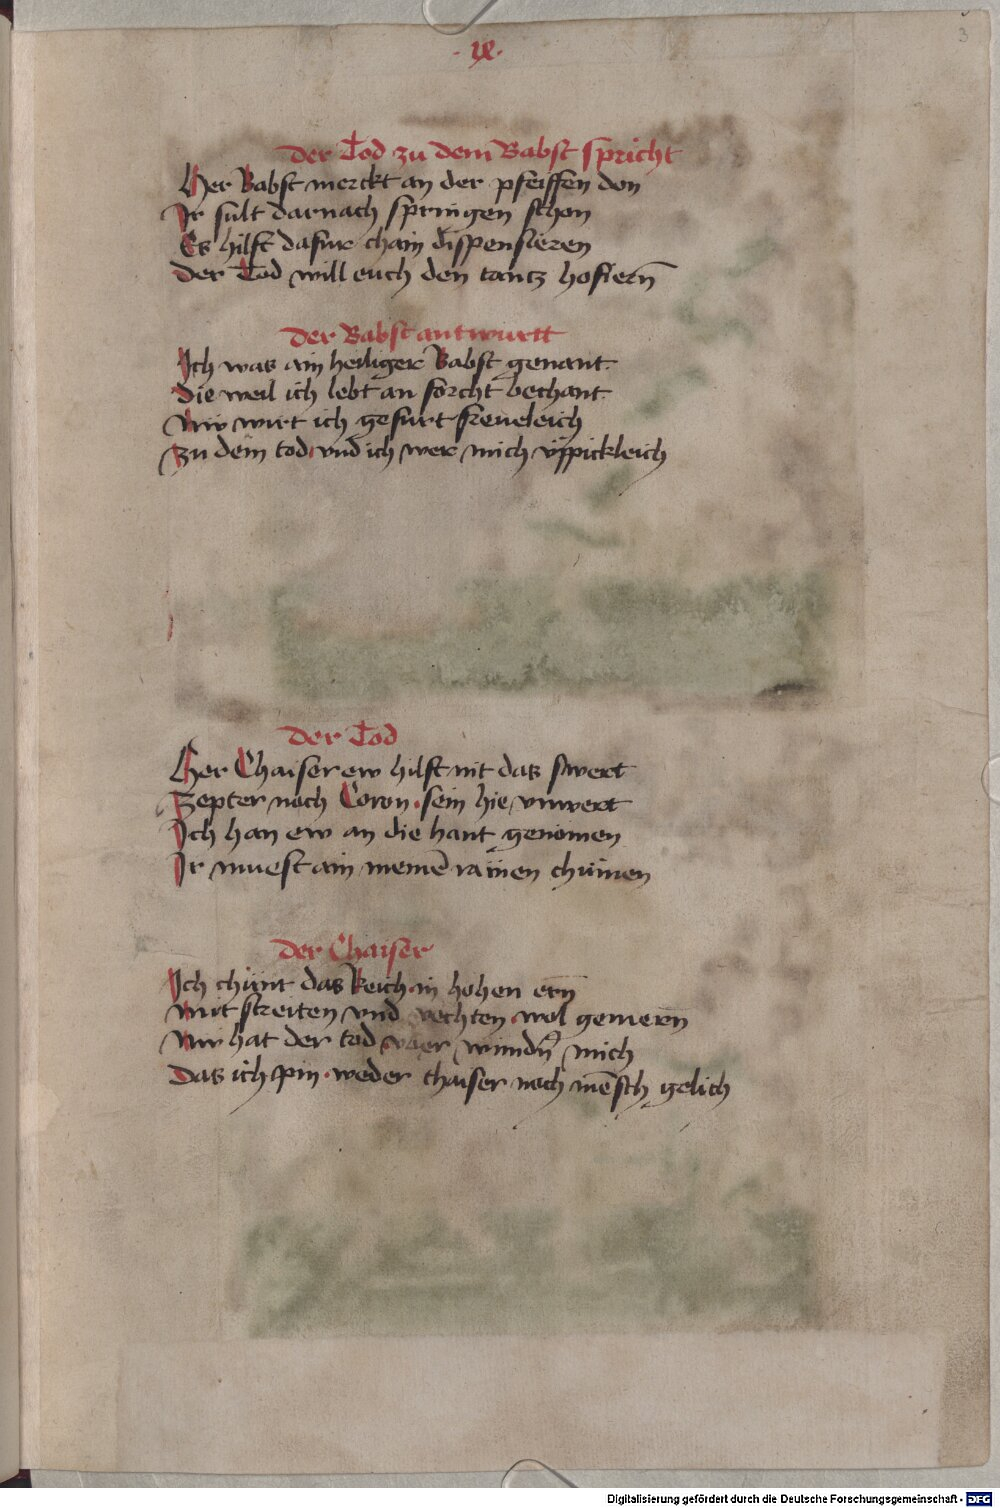 3
der Tod zu dem Babst spricht
Her Babst merckt an der pfeiffen don
Ir sult darnach springen schon
Es hilft dafur chain dispensieren
Der Tod will euch den tantz hofiern̄
der Babst antwurtt
Ich was ain heiliger Babst genant
Die weil ich lebt an forcht bechant
Nw wirt ich gefurt freueleich
Zu dem tod vnd ich wer mich üppickleich
der Tod
Her Chaiser ew hilft nit das swert
Zepter noch Coron sein hie vnwert
Ich han ew an die hant genomen
Ir muest ain meinē raiien chumen
der Chaiser
Ich chunt das Reich in hohen ern̄
Mit streiten vnd vechten wol gemern̄
Nw hat der tod vber wundn̄ mich
Das ich pin weder chaiser noch mēsch gelich
Digitalisierung gefördert durch die Deutsche Forschungsgemeinschaft - DFG